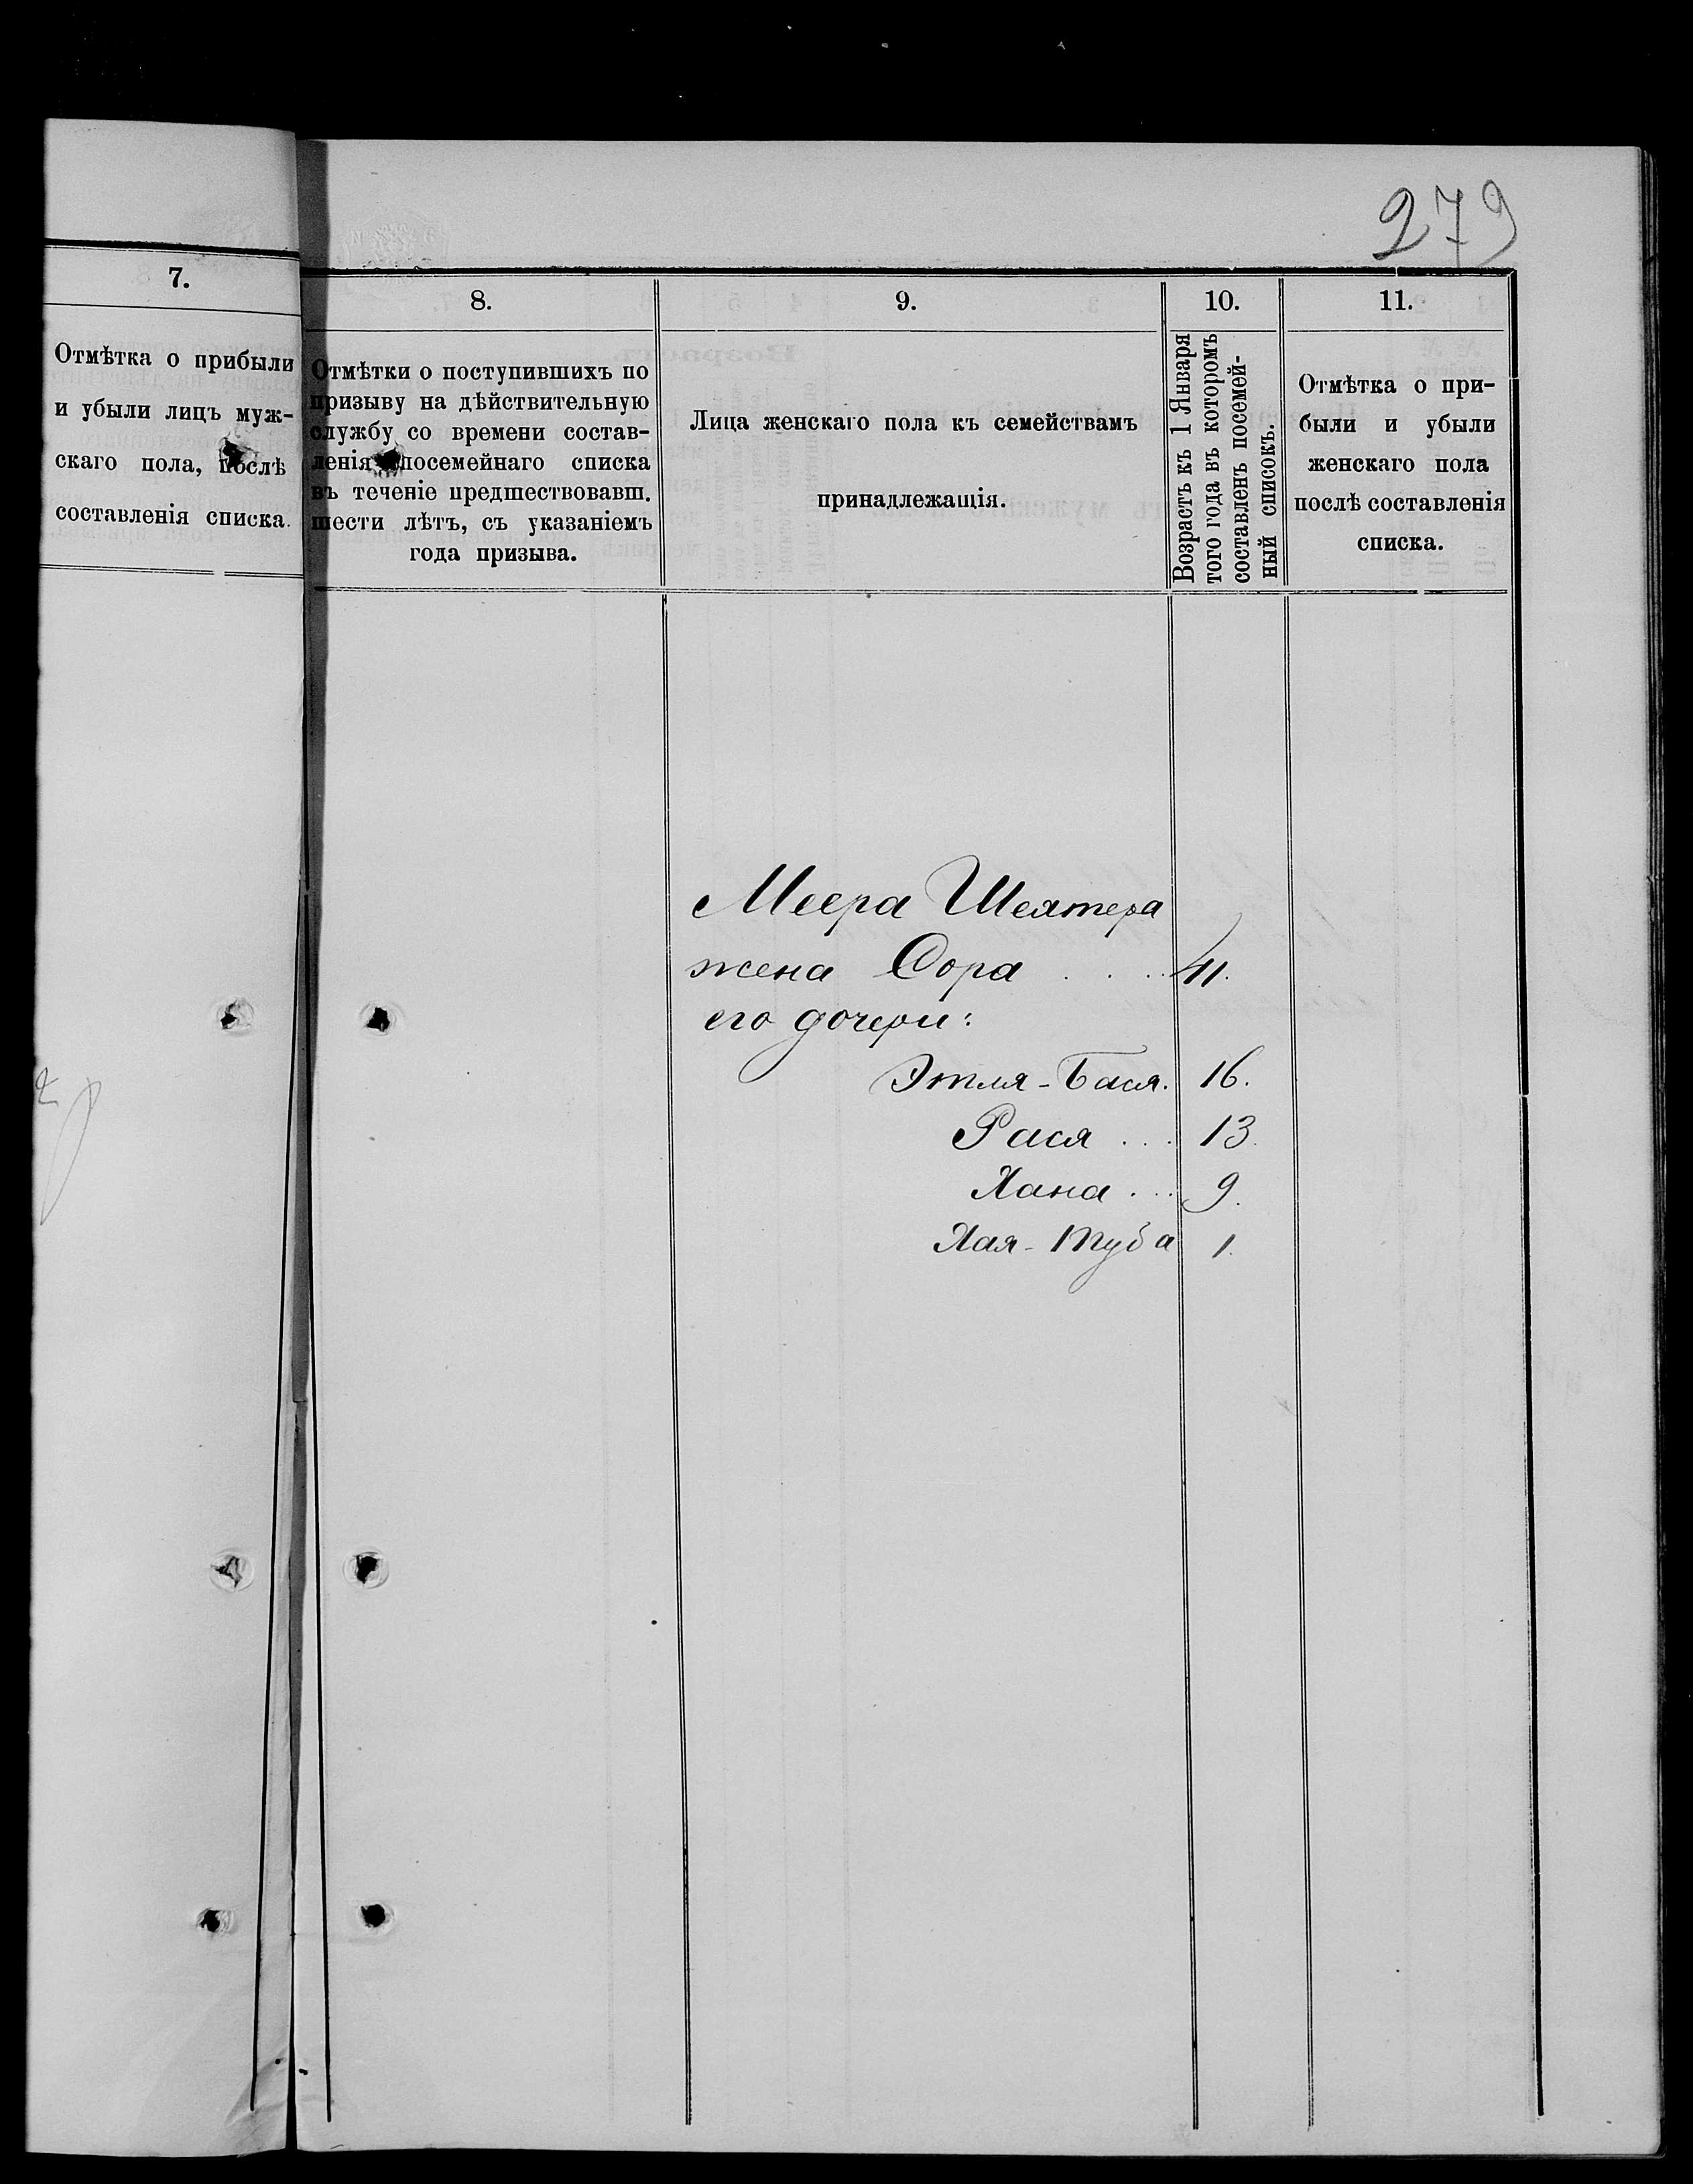 279
7.
Отмѣтка о прибыли
и убыли лицъ муж-
скаго пола, послѣ
составленія списка.
8.
Отмѣтки о поступившихъ по
призыву на дѣйствительную
службу со времени состав-
ленія посемейнаго списка
въ теченіе предшествовавш.
шести лѣтъ, съ указаніемъ
года призыва.
9.
Лица женскаго пола къ семействамъ
принадлежащія.
10.
Возрастъ къ 1 Января
того года въ которомъ
составленъ посемей-
ный списокъ.
11.
Отмѣтка о при-
были и убыли
женскаго пола
послѣ составленія
списка.
Меера Шехтера
жена Сора . . . 41.
его дочери:
Этля-Бася. 16.
Рася . . . 13.
Хана . . . 9.
Хая-Туба 1.